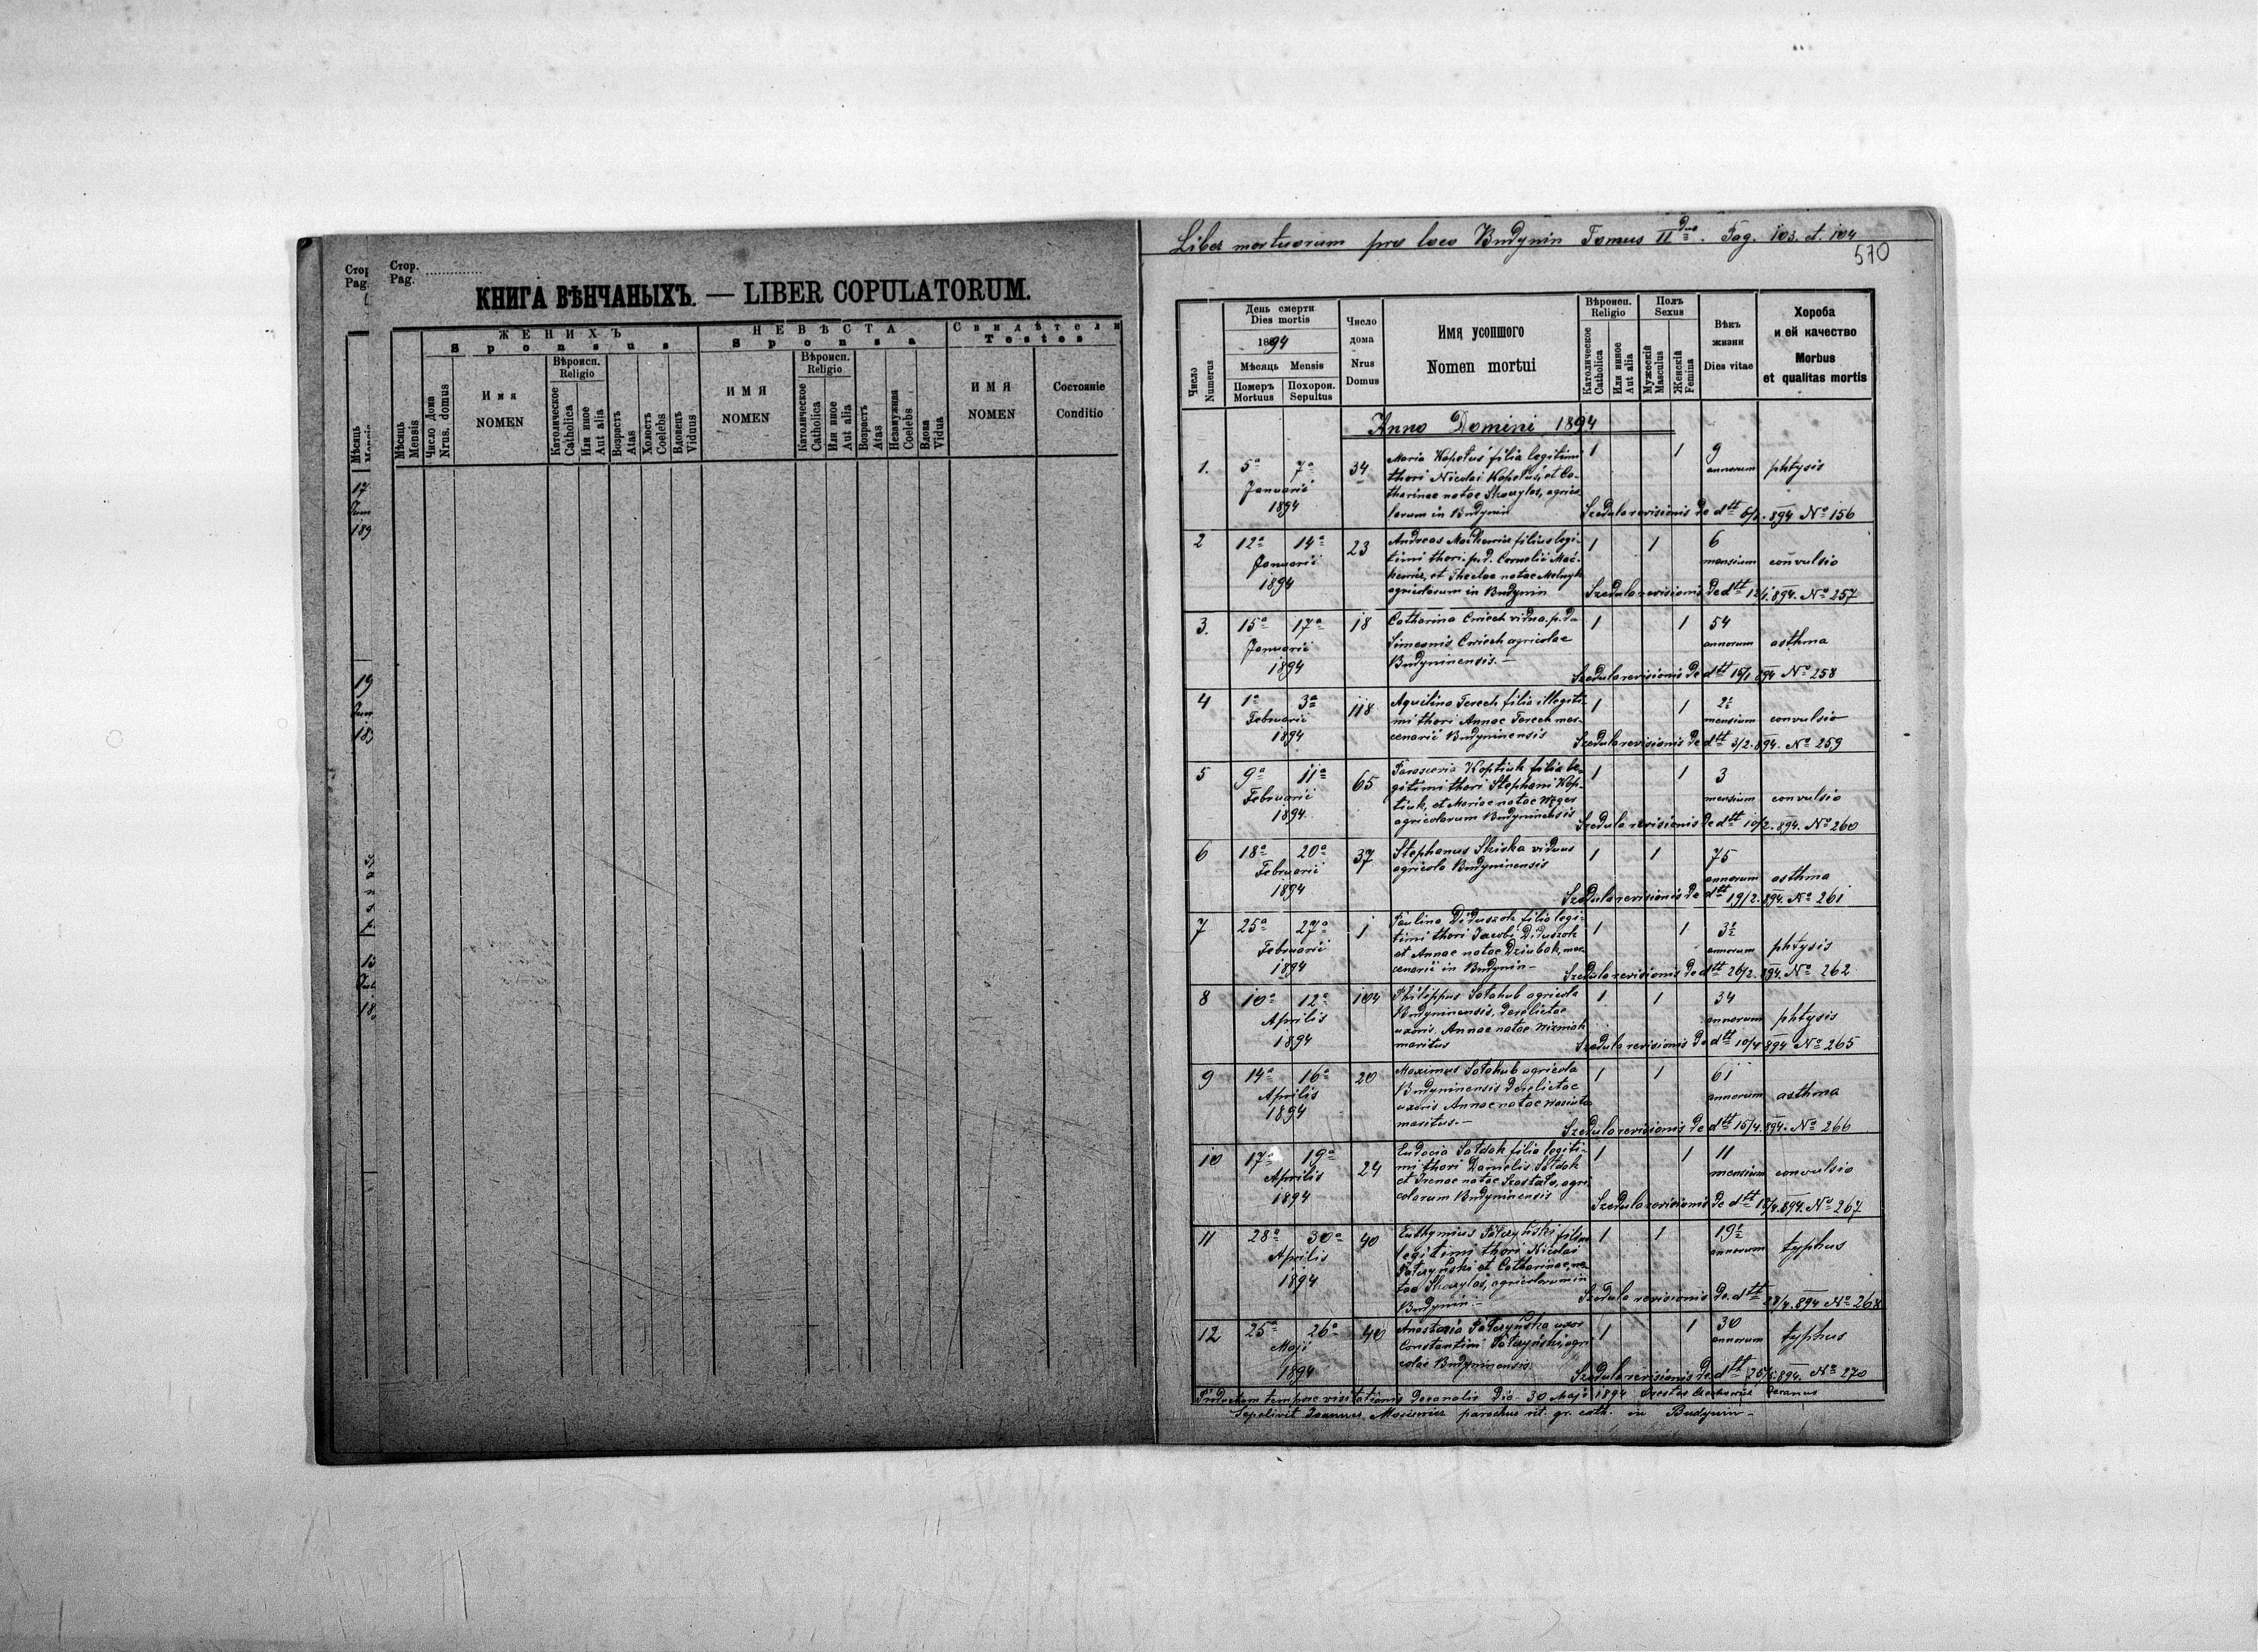 Стор.
Pag.
Стор.
Pag.
КНИГА ВѢНЧАНЫХЪ. — LIBER COPULATORUM.
ЖЕНИХЪ
Sponsus
НЕВѢСТА
Sponsa
Свидѣтели
Testes
Мѣсяць
Mensis
Число дома
Nrus. domus
Имя
NOMEN
Вѣроисп.
Religio
Католическое
Catholica
Или иное
Aut alia
Возрастъ
Atas
Холостъ
Coelebs
Вдовецъ
Viduus
ИМЯ
NOMEN
Вѣроисп.
Religio
Католическое
Catholica
Или иное
Aut alia
Возрастъ
Atas
Незамужная
Coelebs
Вдова
Vidua
ИМЯ
NOMEN
Состояніе
Conditio
Мѣсяць
17
189
19
Liber mortuorum pro loco Budynin Tomus II. Pag. 103. et. 104
570
Число
Numerus
День смерти
Dies mortis
1894
Мѣсяць Mensis
Померъ
Mortuus
Похорон.
Sepultus
Число
дома
Nrus
Domus
Имя усопшого
Nomen mortui
Вѣроисп.
Religio
Католическое
Catholica
Или инное
Aut alia
Полъ
Sexus
Мужескій
Masculus
Женскій
Femina
Вѣкъ
жизни
Dies vitae
Хороба
и ей качество
Morbus
et qualitas mortis
Anno Domini 1894
1. 5a 7a Januarii 1894 34
Maria Kopetus filia legitimi
thori Nicolai Kopetus, et Ca-
tharinae natae agrico-
larum in Budynin
1 1 9 annorum phtysis
Szedula revisionis de dtt 6/1. 894 No 156
2 12a 14a Januarii 1894 23
Andreas filius legi-
timi thori p.d. Cornelii Mać-
et Theclae natae Melnyk
agricolarum in Budynin
1 1 6 mensium convulsio
Szedula revisionis de dtt 12/1. 894. No 257
3. 15a 17a Januarii 1894 18
Catharina Cwiech vidua p. d.
Simeonis Cwiech agricolae
Budyninensis. —
1 1 54 annorum asthma
Szedula revisionis de dtt 16/1 894 No 258
4 1a 3a Februarii 1894 118
Aquilina Terech filia illegiti-
mi thori Annae Terech mer-
cenarii Budyninensis
1 1 2½ mensium convulsio
Szedula revisionis de dtt 3/2. 894. No 259
5 9a 11a Februarii 1894 65
Parascevia Koptiuk filia le-
gitimi thori Stephani Kop-
tiuk, et Mariae natae
agricolarum Budyninensis
1 1 3 mensium convulsio
Szedula revisionis de dtt 10/2. 894. No 260
6 18a 20a Februarii 1894 37
Stephanus Skiska viduus
agricola Budyninensis
1 1 75 annorum asthma
Szedula revisionis de dtt 19/2. 894. No 261
7 25a 27a Februarii 1894 1
Paulina Diduszok filia legi-
timi thori Jacobi Diduszok
et Annae natae Dziubak, mer-
cenarii in Budynin —
1 1 3½ annorum phtysis
Szedula revisionis de dtt 26/2. 894. No 262
8 10a 12a Aprilis 1894 104
Philippus Sołohub agricola
Budyninensis, derelictae
uxoris Annae natae
maritus
1 1 34 annorum phtysis
Szedula revisionis de dtt 10/4 894 No 265
9 14a 16a Aprilis 1894 20
Maximus Sołohub agricola
Budyninensis derelictae
uxoris Annae natae
maritus. —
1 1 61 annorum asthma
Szedula revisionis de dtt 15/4. 894. No 266
10 17a 19a Aprilis 1894 24
Eudocia Sołdak filia legiti-
mi thori Danielis Sołdak
et Irenae natae agri-
colarum Budyninensis
1 1 11 mensium convulsio
Szedula revisionis de dtt 894. No 267
11 28a 30a Aprilis 1894 40
Euthymius filius
legitimi thori Nicolai
et Catharinae na-
tae agricolarum in
Budynin. —
1 1 19½ annorum typhus
Szedula revisionis de dtt 28/4. 894 No 268
12 25a 26a Maji 1894 40
Anastasia uxor
Constantini agri-
colae Budyninensis.
1 1 30 annorum typhus
Szedula revisionis de dtt 894. No 270
tempore visitationis decanalis die 30 Maji 1894 Decanus
Sepelivit Joannes parochus rit. gr. cath. in Budynin —